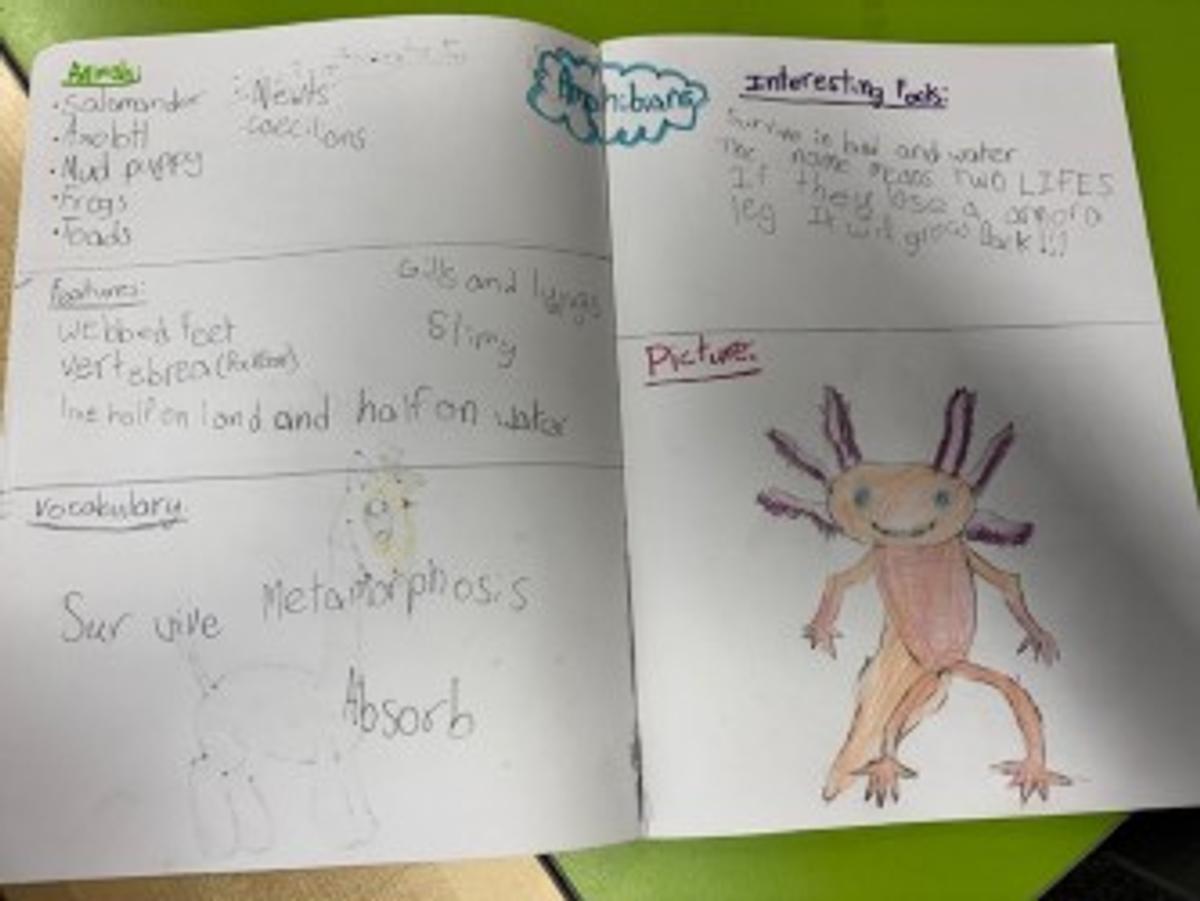 Amphibians
Animals
• Salamander
• Axolotl
• Mud puppy
• Frogs
• Toads
• Newts
• caecilans
Features:
webbed feet
vertebrea (Backbone)
live half on land and half on water
Gills and lungs
Slimy
Vocabulary
Survive
Metamorphosis
Absorb
Interesting Facts:
Survive in land and water
The name means TWO LIFES
If they lose a arm or a
leg It will grow Back!!!
Picture: